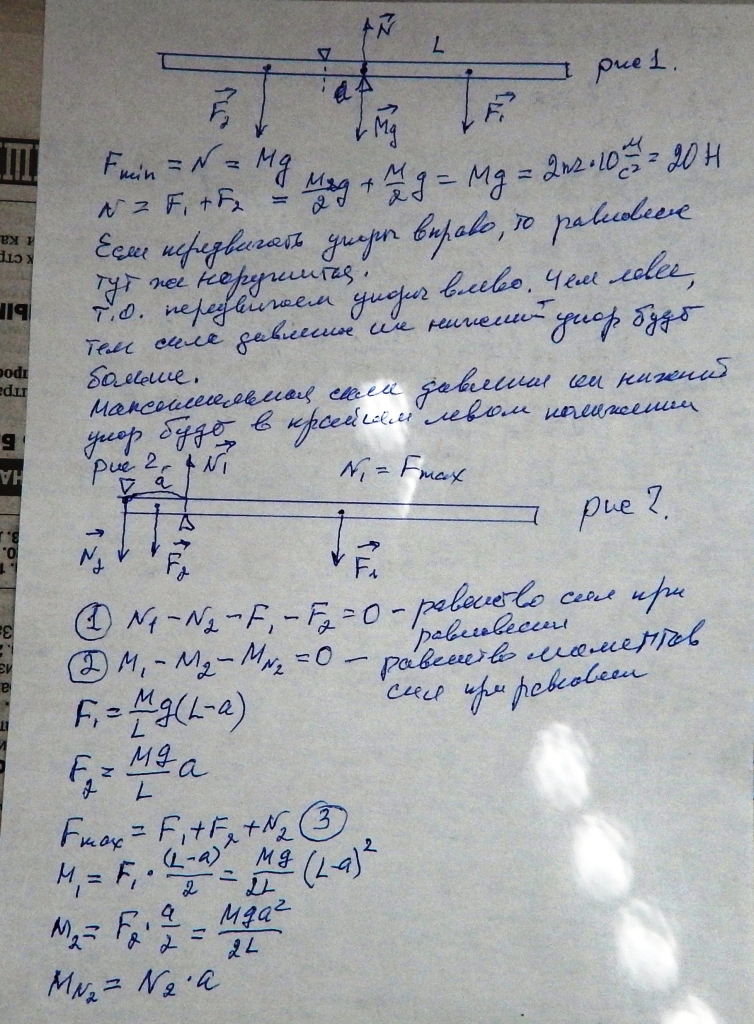 N⃗
L
рис 1.
a
F⃗₂
Mg⃗
F⃗₁
Fmin = N = Mg
N = F₁ + F₂ = M/2 g + M/2 g = Mg = 2кг·10 м/с² = 20 Н
Если передвигать упоры вправо, то равновесие
тут же нарушится.
Т.о. передвигаем упоры влево. Чем левее,
тем сила давления на нижний упор будет
больше.
Максимальная сила давления на нижний
упор будет в крайнем левом положении
рис 2.
a
N⃗₁
N₁ = Fmax
рис 2.
N⃗₂
F⃗₂
F⃗₁
① N₁ − N₂ − F₁ − F₂ = 0 – равенство сил при
равновесии
② M₁ − M₂ − M_N₂ = 0 – равенство моментов
сил при равновесии
F₁ = M/L g(L−a)
F₂ = Mg/L a
Fmax = F₁ + F₂ + N₂ ③
M₁ = F₁ · (L−a)/2 = Mg/2L (L−a)²
M₂ = F₂ · a/2 = Mga²/2L
M_N₂ = N₂ · a